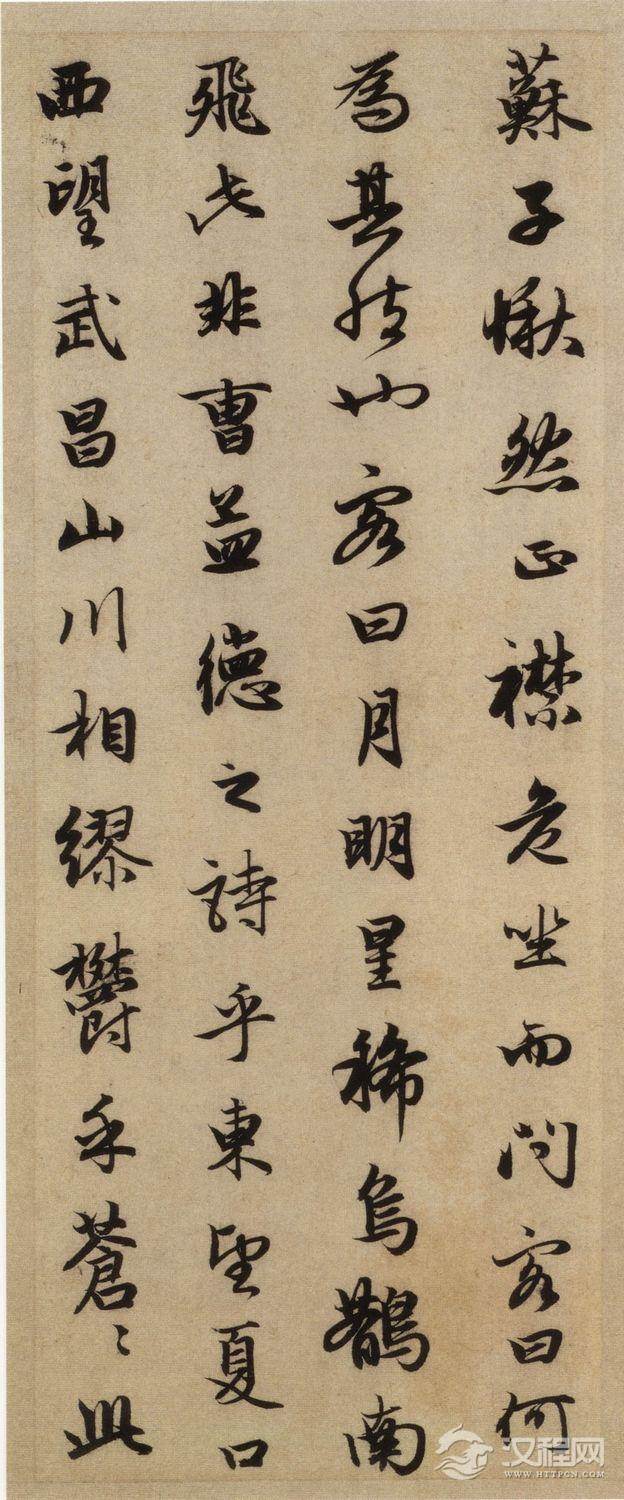 蘇子愀然正襟危坐而問客曰何
為其然也客曰月明星稀烏鵲南
飛此非曹益德之詩乎東望夏口
西望武昌山川相繆鬱乎蒼〻此
汉程网
WWW.HTTPCN.COM